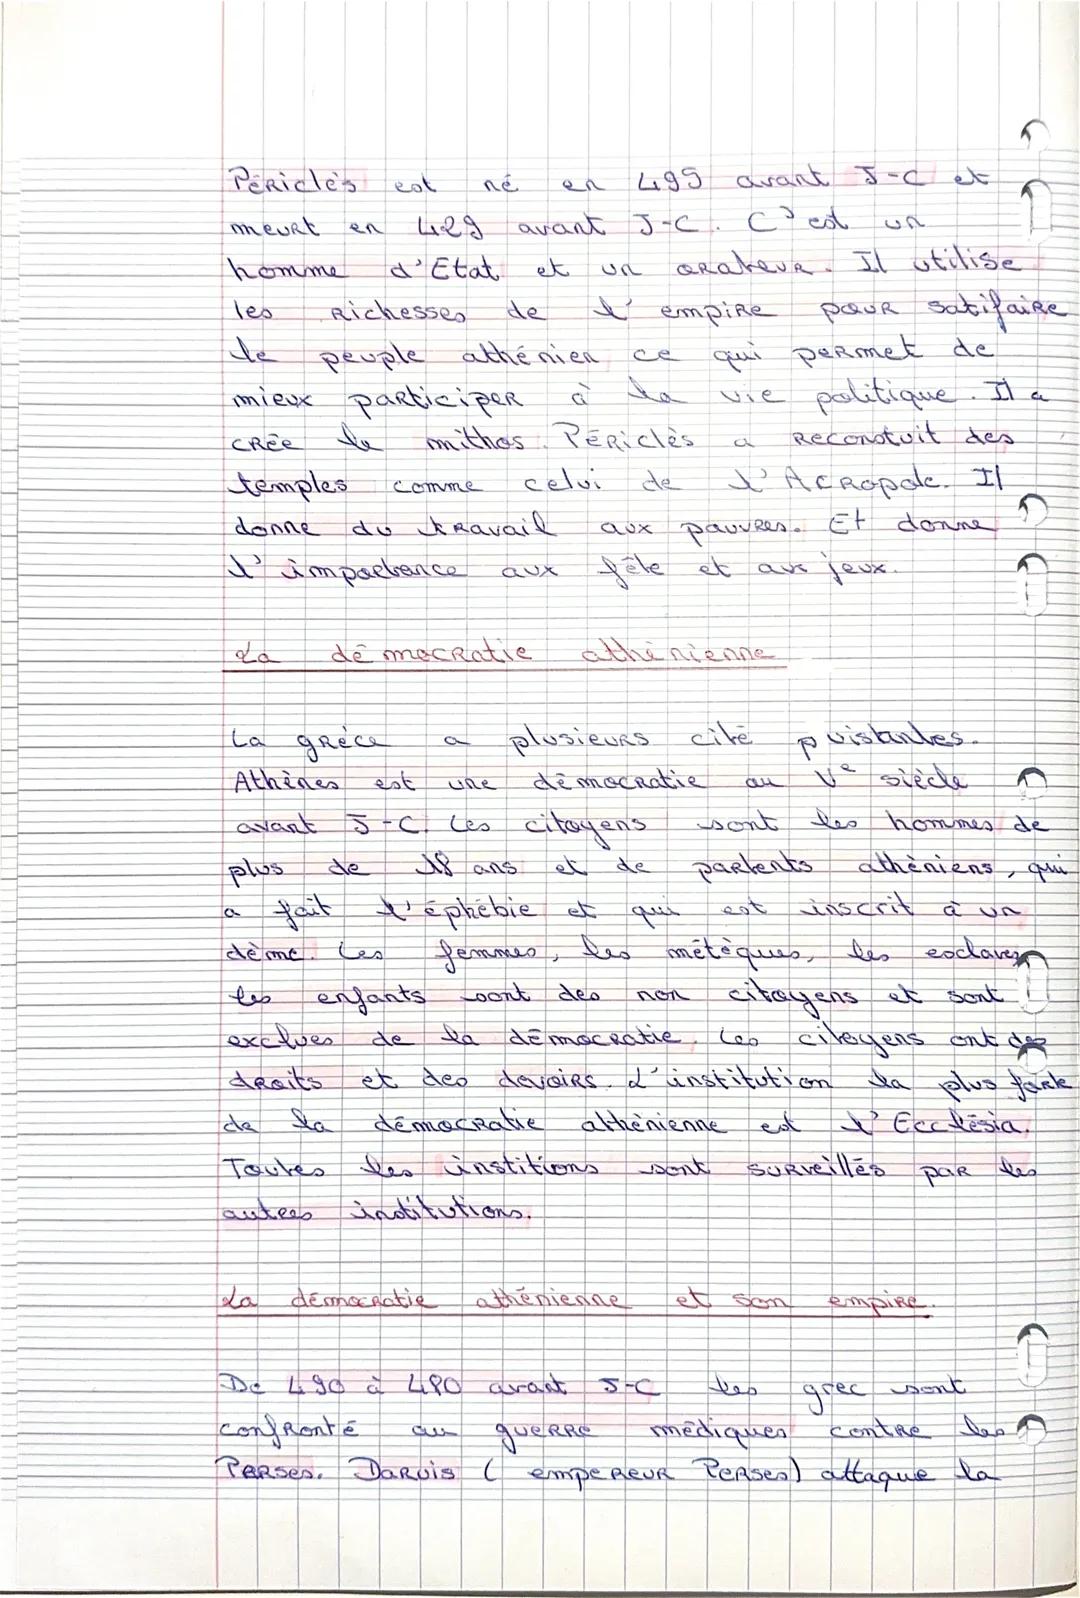 Périclès est né en 495 avant J-C et
meurt en 429 avant J-C. C'est un
homme d'Etat et un orateur. Il utilise
les richesses de l'empire pour satifaire
le peuple athénien ce qui permet de
mieux participer à la vie politique. Il a
crée le mithos. Périclès a reconstuit des
temples comme celui de l'Acropole. Il
donne du travail aux pauvres. Et donne
l'importence aux fête et aux jeux.
La démocratie athénienne
La gréce a plusieurs cité puistantes.
Athènes est une démocratie au Ve siècle
avant J-C. Les citoyens sont les hommes de
plus de 18 ans et de partents athèniens, qui
a fait l'éphébie et qui est inscrit à un
dème. Les femmes, les métèques, les esclaves
les enfants sont des non citoyens et sont
exclues de la démocratie. Les citoyens ont des
droits et des devoirs. L'institution la plus forte
de la démocratie athénienne est l'Ecclésia.
Toutes les institions sont surveillés par les
autres institutions.
La démocratie athénienne et son empire.
De 490 à 480 avant J-C les grec sont
confronté au guerre médiques contre les
Perses. Daruis (empereur Perses) attaque la